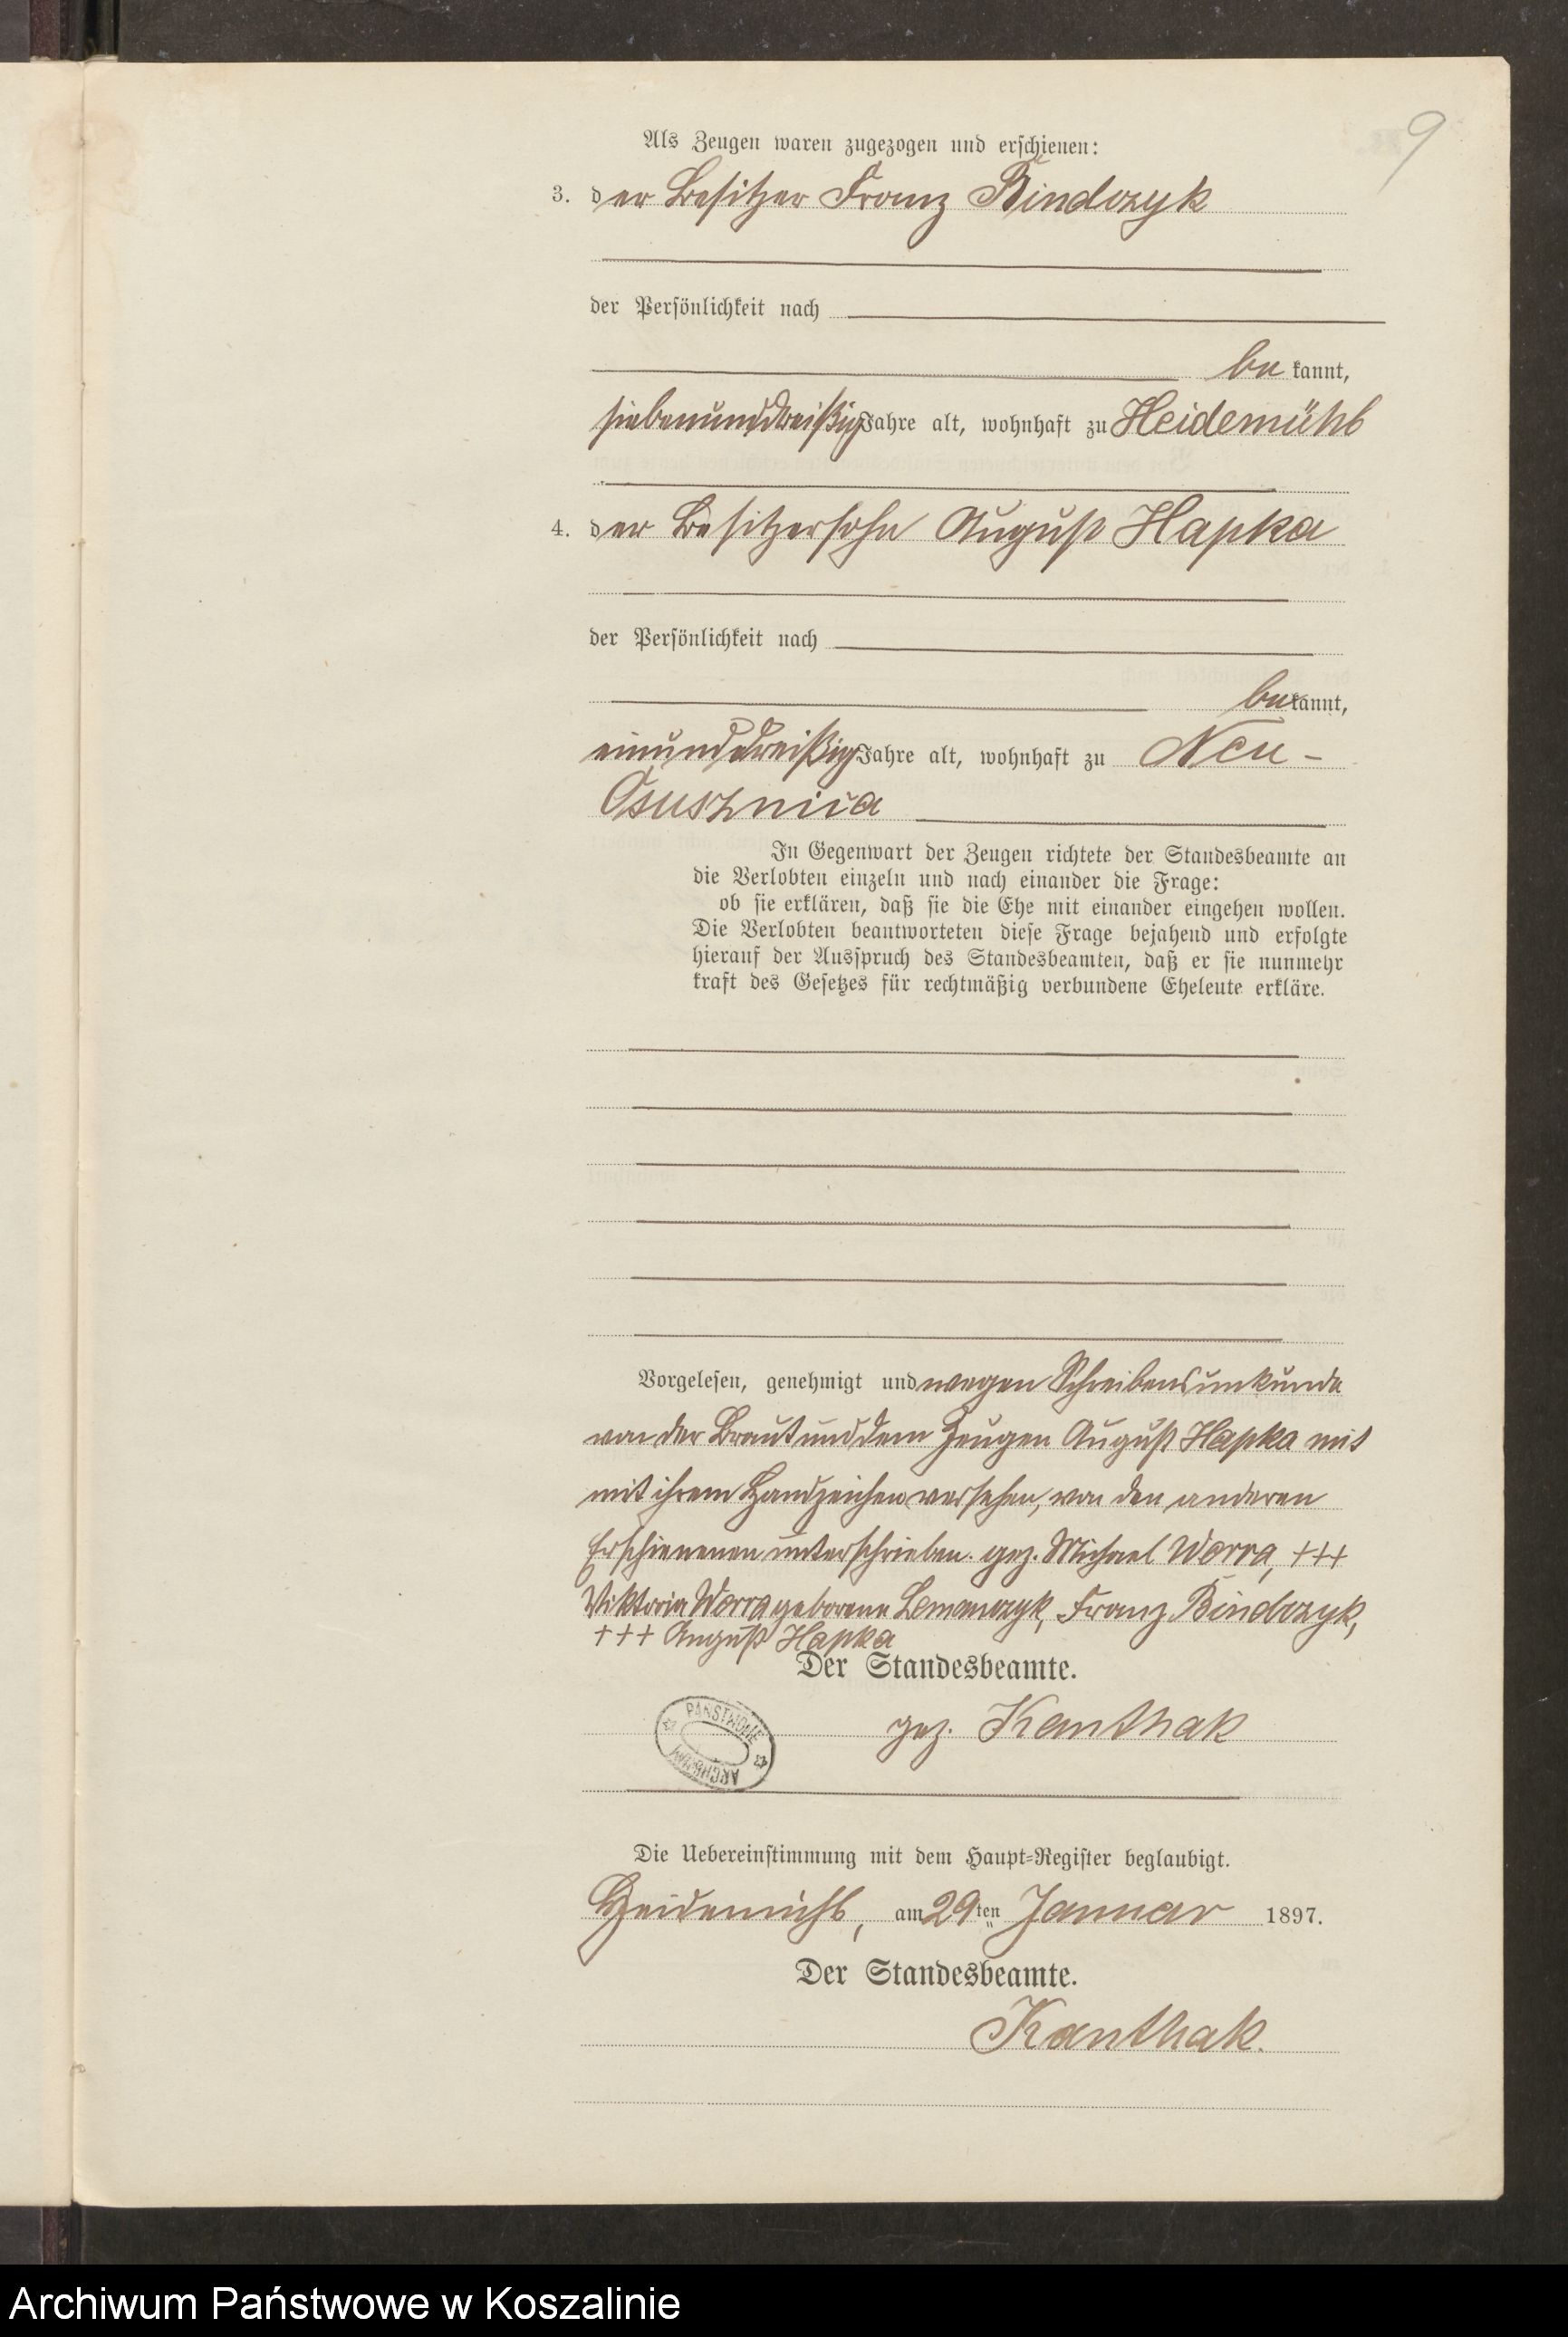 9
Als Zeugen waren zugezogen und erschienen:
3. der Besitzer Franz Bindczyk
der Persönlichkeit nach
bekannt,
siebenunddreißig Jahre alt, wohnhaft zu Heidemühl
4. der Besitzersohn August Hapka
der Persönlichkeit nach
bekannt,
einunddreißig Jahre alt, wohnhaft zu Neu-
Osusznica
In Gegenwart der Zeugen richtete der Standesbeamte an
die Verlobten einzeln und nach einander die Frage:
ob sie erklären, daß sie die Ehe mit einander eingehen wollen.
Die Verlobten beantworteten diese Frage bejahend und erfolgte
hierauf der Ausspruch des Standesbeamten, daß er sie nunmehr
kraft des Gesetzes für rechtmäßig verbundene Eheleute erkläre.
Vorgelesen, genehmigt und wegen Schreibensunkunde
von der Braut und dem Zeugen August Hapka mit
mit ihrem Handzeichen versehen, von den anderen
Erschienenen unterschrieben. gez. Michael Worra, +++
Viktoria Worra geborene Lemanczyk, Franz Bindczyk,
+++ August Hapka
Der Standesbeamte.
gez. Kanthak
PAŃSTWOWE ARCHIWUM
Die Uebereinstimmung mit dem Haupt-Register beglaubigt.
Heidemühl, am 29ten Januar 1897.
Der Standesbeamte.
Kanthak.
Archiwum Państwowe w Koszalinie